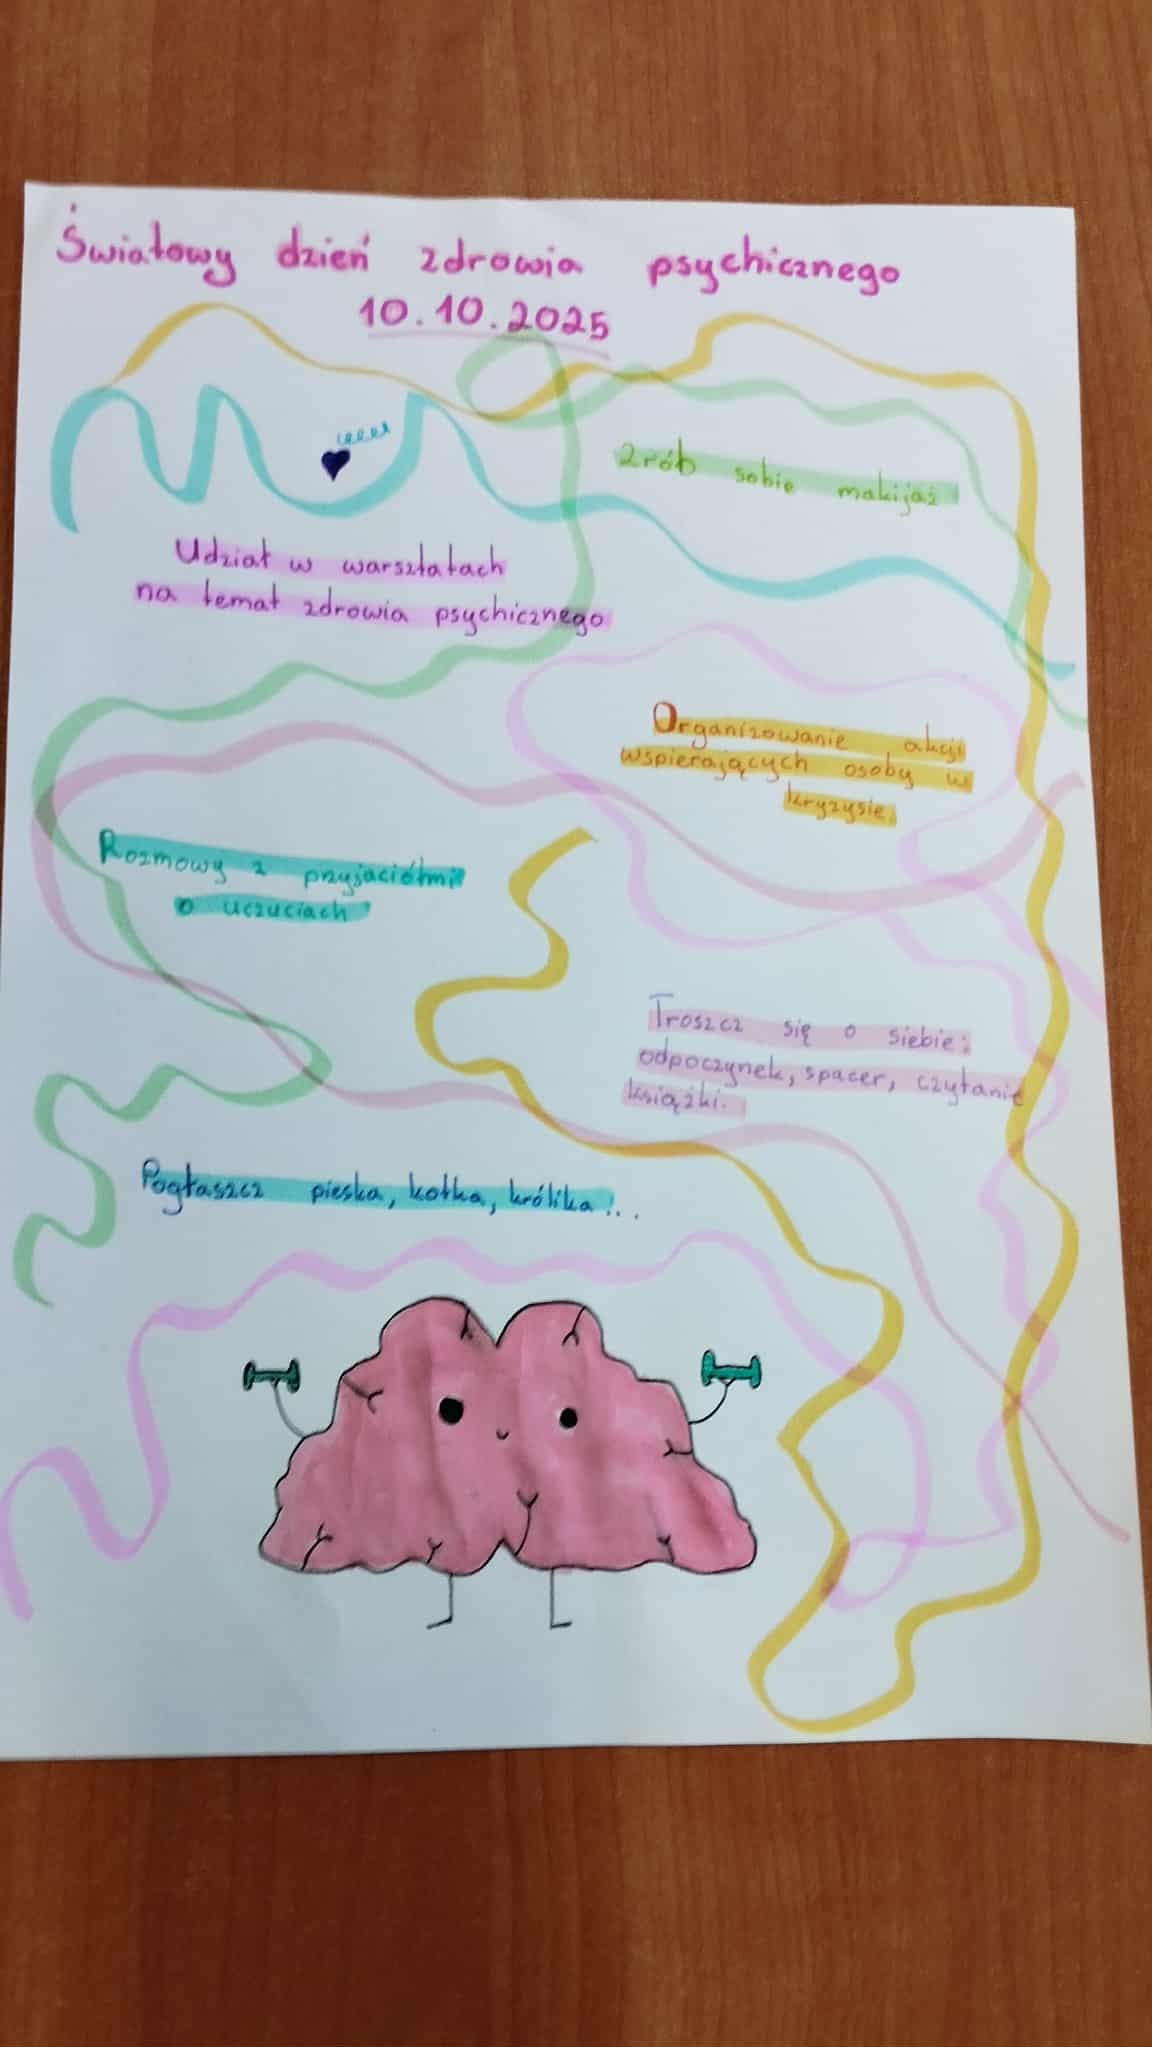 Światowy dzień zdrowia psychicznego
10.10.2025
Zrób sobie makijaż
Udział w warsztatach
na temat zdrowia psychicznego
Organizowanie akcji
wspierających osoby w
kryzysie.
Rozmowy z przyjaciółmi
o uczuciach
Troszcz się o siebie:
odpoczynek, spacer, czytanie
książki.
Pogłaszcz pieska, kotka, królika!..